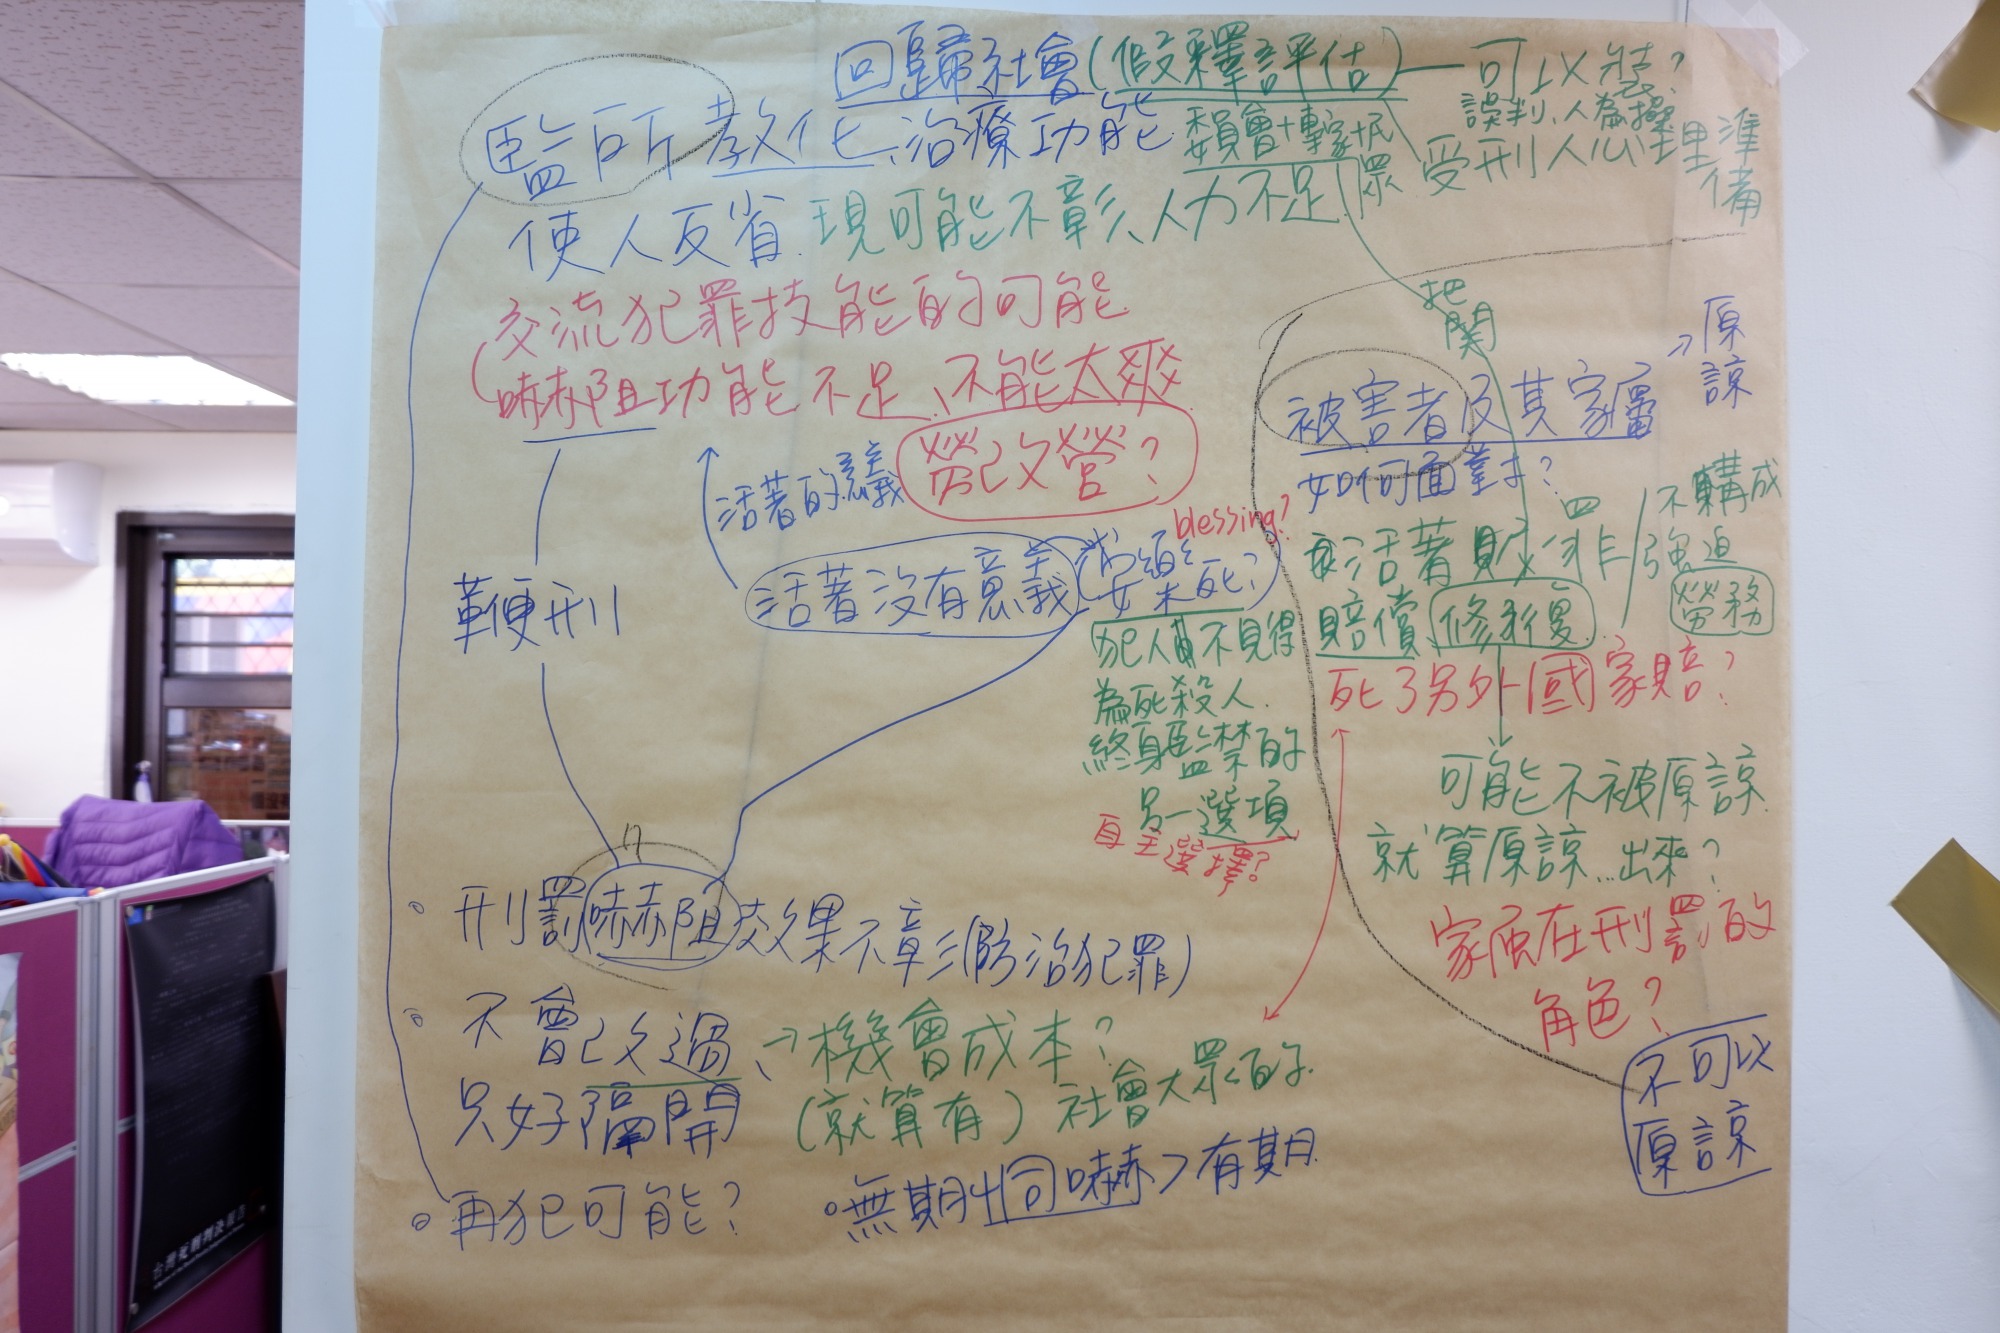 回歸社會(假釋評估)—可以裝?
誤判、人為操
監所教化、治療功能
委員會+專家+民眾
受刑人心理準備
使人反省.現可能不彰、人力不足
把關
交流犯罪技能的可能
嚇赫阻功能不足、不能太爽
勞改營?
活著的意義
活著沒有意義
blessing?
求死?
鞭刑
犯人不見得
為死殺人.
終身監禁的
另一選項
自主選擇?
被害者及其家屬
→原諒
如何面對?
活著贖罪/不構成強迫
勞務
賠償、修復
死了另外國家賠?
可能不被原諒
就算原諒...出來?
家屬在刑罰的
角色?
不可以
原諒
刑罰嚇赫阻效果不彰(防治犯罪)
不會改過、→機會成本?
只好隔開
(就算有)社會大眾的
再犯可能?
無期出同嚇赫>有期.
台灣死刑判決報告